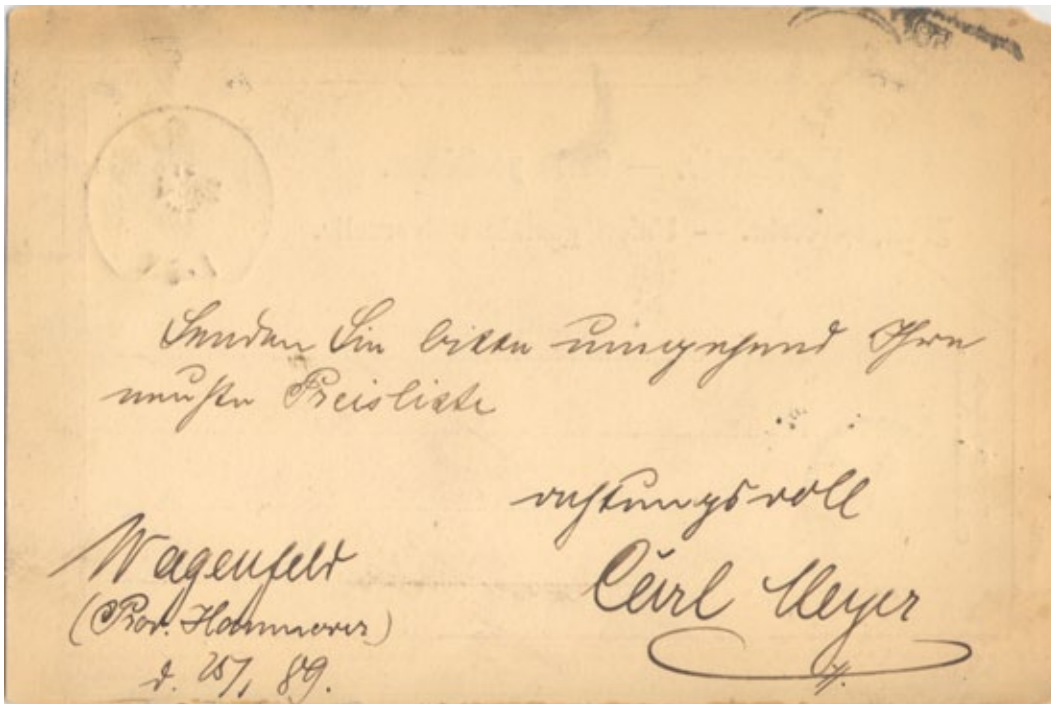 Senden Sie bitte umgehend Ihre
neuste Preisliste
achtungsvoll
Carl Meyer
Wagenfeld
(Prov. Hannover)
d. 25/1 89.